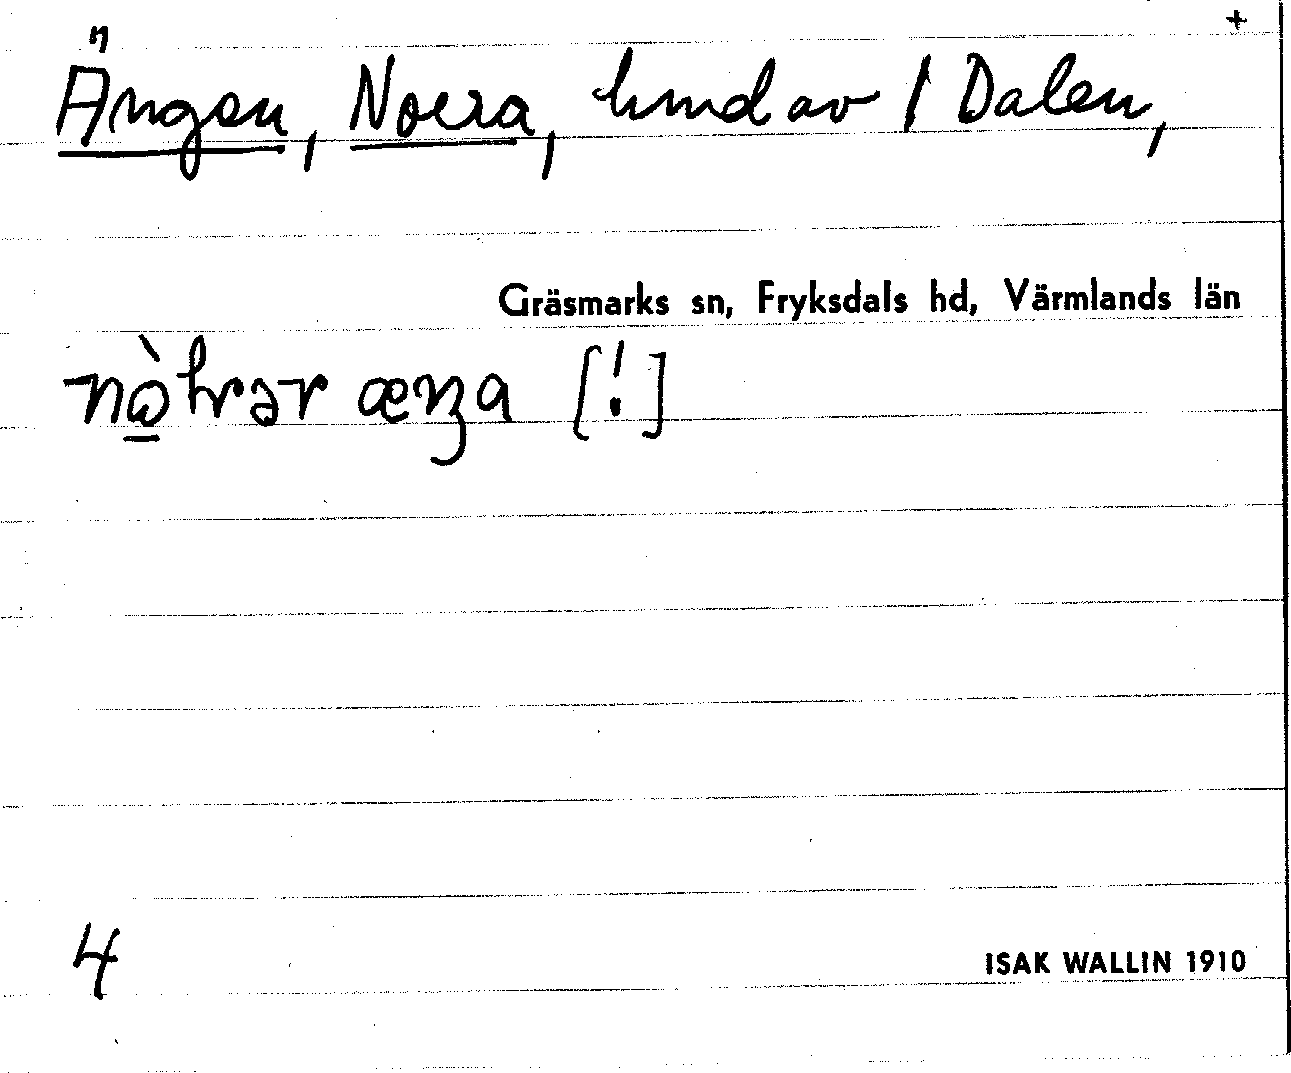 +
Ängen, Norra, hmd av 1 Dalen,
Gräsmarks sn, Fryksdals hd, Värmlands län
[!]
4
ISAK WALLIN 1910